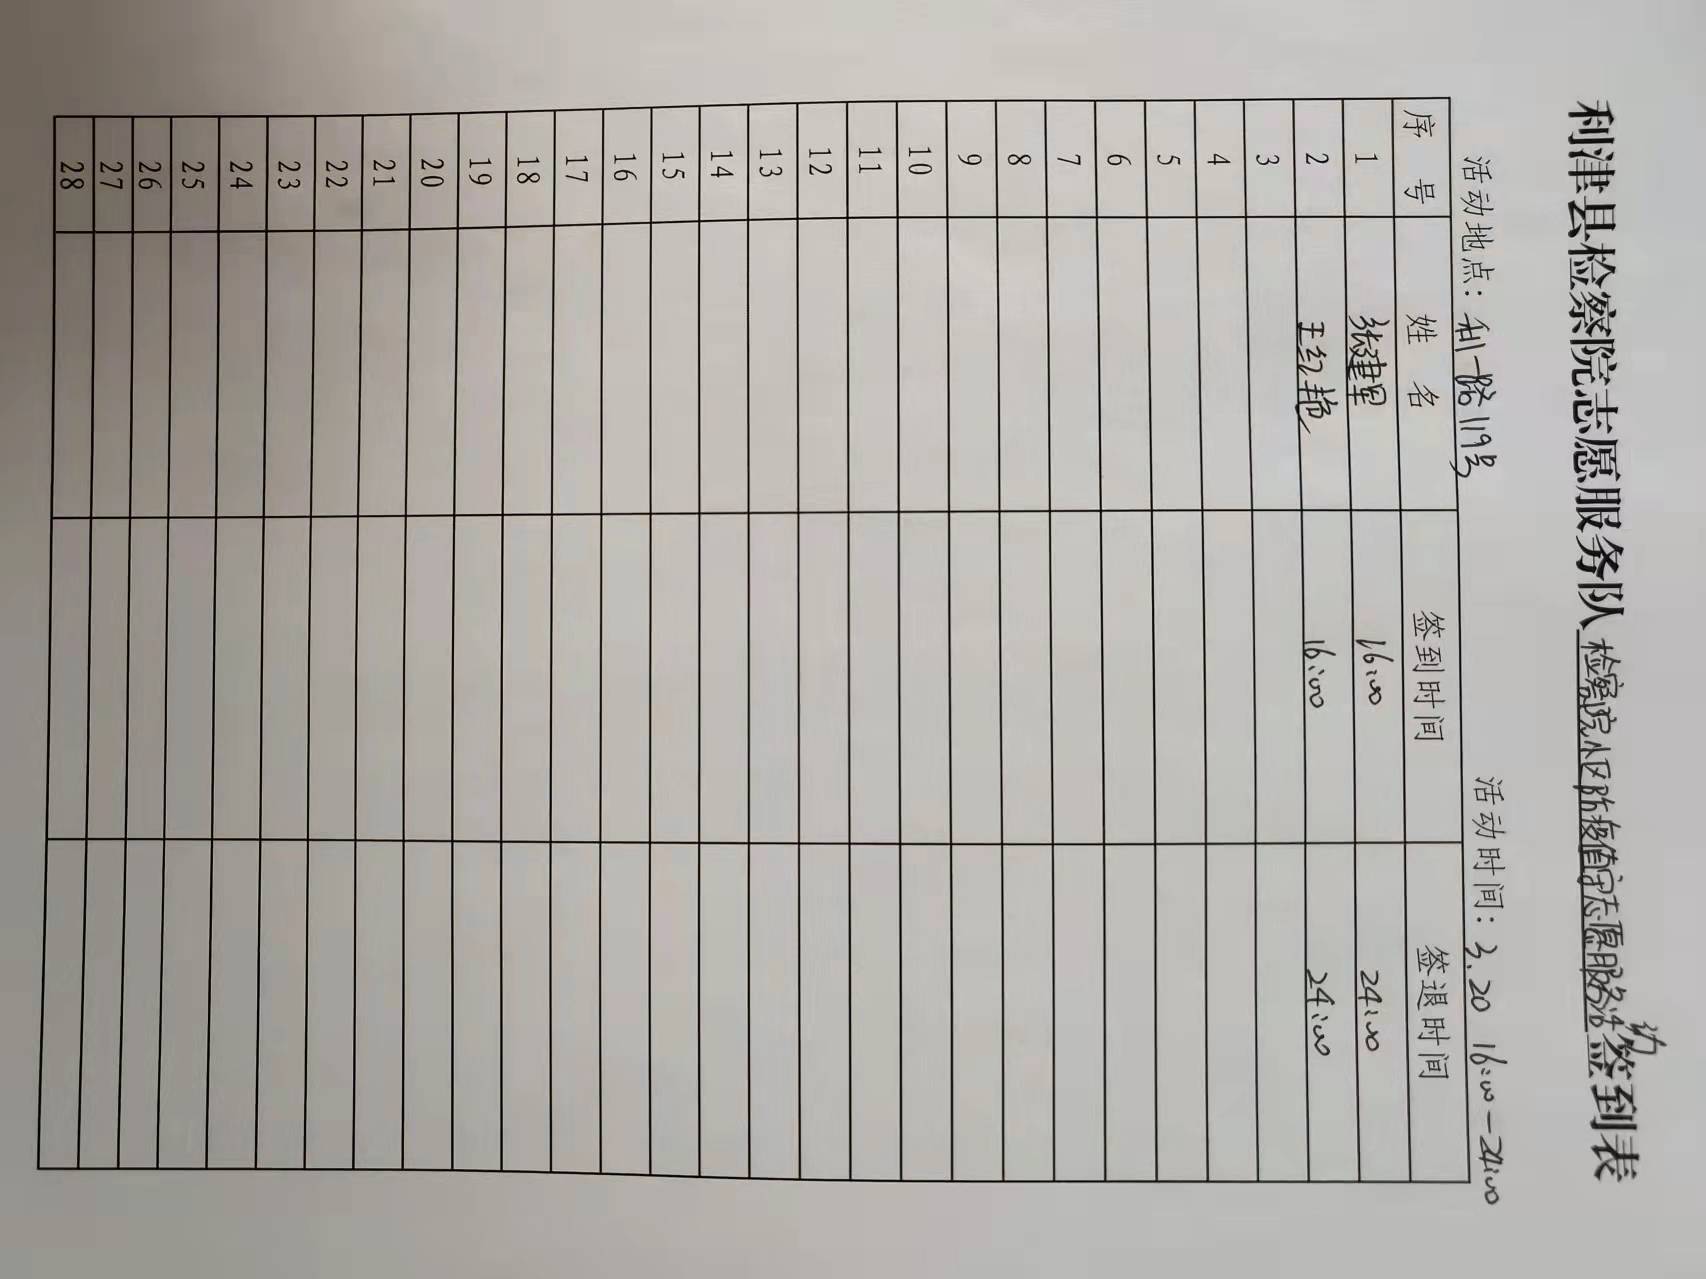 利津县检察院志愿服务队检察院小区防疫值守志愿服务活动签到表
活动地点：利一路119号 活动时间：3.20 16:00-24:00
序号 姓名 签到时间 签退时间
1 张建军 16:00 24:00
2 王红艳 16:00 24:00
3
4
5
6
7
8
9
10
11
12
13
14
15
16
17
18
19
20
21
22
23
24
25
26
27
28